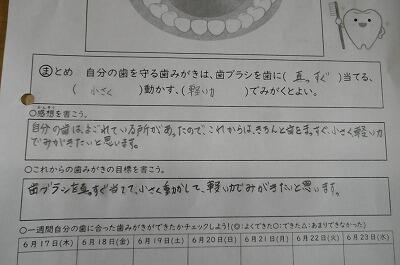 ㋮とめ 自分の歯を守る歯みがきは、歯ブラシを歯に( 直っすぐ )当てる、
( 小さく )動かす、( 軽い力 )でみがくとよい。
○感想を書こう。
自分の歯は、よごれている所があったので、これからは、きちんと歯をまっすぐ、小さく軽い力
でみがきたいと思います。
○これからの歯みがきの目標を書こう。
歯ブラシを直っすぐ当てて、小さく動かして、軽い力でみがきたいと思います。
○一週間自分の歯に合った歯みがきができたかチェックしよう!(◎:よくできた○:できた△:あまりできなかった)
6月17日(木) 6月18日(金) 6月19日(土) 6月20日(日) 6月21日(月) 6月22日(火) 6月23日(水)